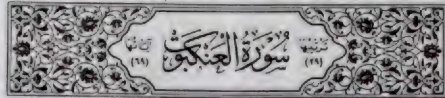 ترتيبها (٢٩) سُورَةُ العَنكَبُوت آياتها (٦٩)